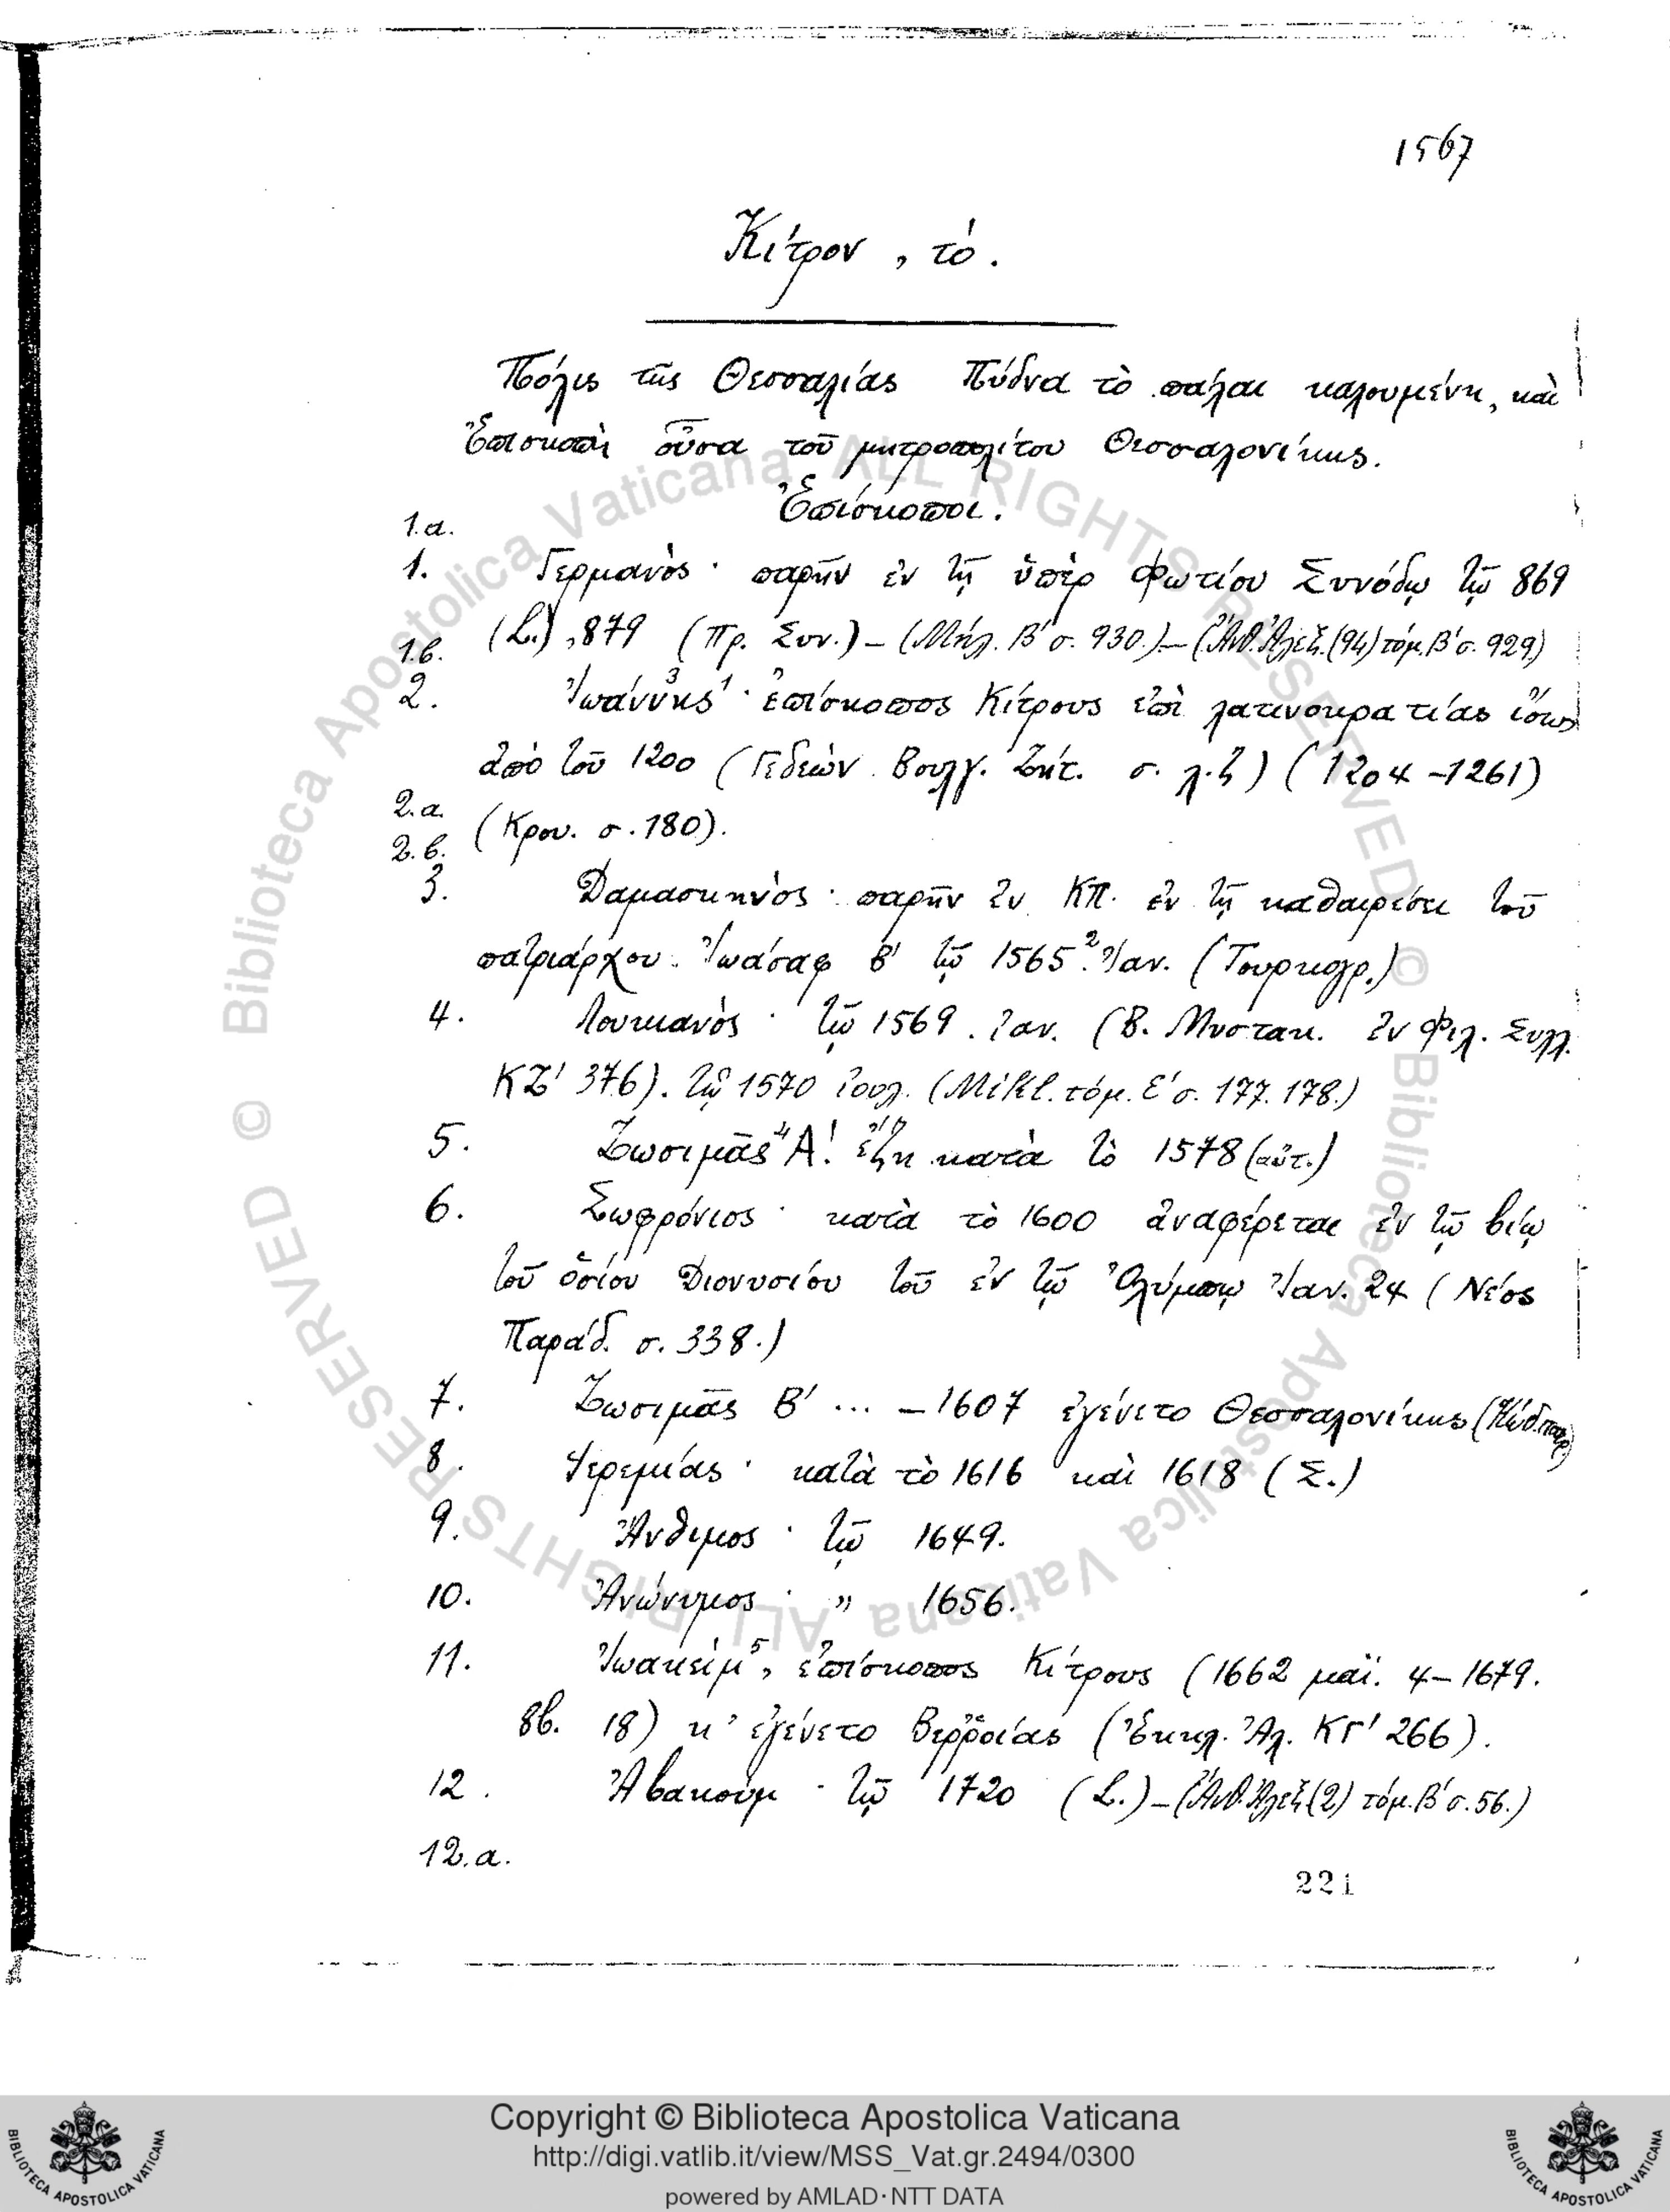 1567
Κίτρον, τό.
Πόλις τῆς Θεσσαλίας Πύδνα τὸ πάλαι καλουμένη, καὶ
Ἐπισκοπὴ οὖσα τοῦ μητροπολίτου Θεσσαλονίκης.
Ἐπίσκοποι.
1.α.
1. Γερμανὸς · παρῆν ἐν τῇ ὑπὲρ Φωτίου Συνόδῳ τῷ 869
(L.), 879 (Πρ. Συν.) – (Μήλ. Β΄ σ. 930.) – (Ἀνθ. Ἀλεξ. (94) τόμ. Β΄ σ. 929)
1.β.
2. Ἰωάννης · ἐπίσκοπος Κίτρους ἐπὶ λατινοκρατίας ἴσως
ἀπὸ τοῦ 1200 (Γεδεὼν Βουλγ. Ζήτ. σ. λ.ζ) (1204–1261)
2.α. (Κρου. σ. 180).
2.β.
3. Δαμασκηνὸς · παρῆν ἐν ΚΠ. ἐν τῇ καθαιρέσει τοῦ
πατριάρχου Ἰωάσαφ Β΄ τῷ 1565.² Ἰαν. (Τουρκογρ.)
4. Λουκιανὸς · τῷ 1569. ἰαν. (Β. Μυστακ. ἐν Φιλ. Συλλ.
ΚΖ΄ 376). τῷ 1570 ἰουλ. (Mikl. τόμ. Ε΄ σ. 177. 178.)
5. Ζωσιμᾶς⁴ Α΄. ἔζη κατὰ τὸ 1578 (αὐτ.)
6. Σωφρόνιος · κατὰ τὸ 1600 ἀναφέρεται ἐν τῷ βίῳ
τοῦ ὁσίου Διονυσίου τοῦ ἐν τῷ Ὀλύμπῳ Ἰαν. 24 (Νέος
Παράδ. σ. 338.)
7. Ζωσιμᾶς Β΄ ... – 1607 ἐγένετο Θεσσαλονίκης (Κώδ. πατρ)
8. Ἱερεμίας · κατὰ τὸ 1616 καὶ 1618 (Σ.)
9. Ἄνθιμος · τῷ 1649.
10. Ἀνώνυμος · " 1656.
11. Ἰωακείμ⁵, ἐπίσκοπος Κίτρους (1662 μαΐ. 4–1679.
8β. 18) κ' ἐγένετο Βερροίας (Ἐκκλ. Ἀλ. ΚΓ΄ 266).
12. Ἀβακούμ · τῷ 1720 (L.) – (Ἀνθ. Ἀλεξ (2) τόμ. Β΄ σ. 56.)
12.α.
221
© Biblioteca Apostolica Vaticana ALL RIGHTS RESERVED © Biblioteca Apostolica Vaticana ALL RIGHTS RESERVED
Copyright © Biblioteca Apostolica Vaticana
http://digi.vatlib.it/view/MSS_Vat.gr.2494/0300
powered by AMLAD·NTT DATA
BIBLIOTECA APOSTOLICA VATICANA
BIBLIOTECA APOSTOLICA VATICANA